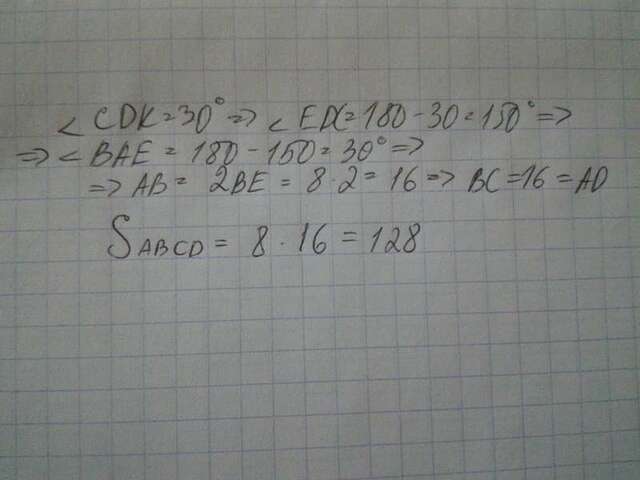 < CDK = 30° => < EDC = 180 - 30 = 150° =>
=> < BAE = 180 - 150 = 30° =>
=> AB = 2BE = 8 · 2 = 16 => BC = 16 = AD
SABCD = 8 · 16 = 128